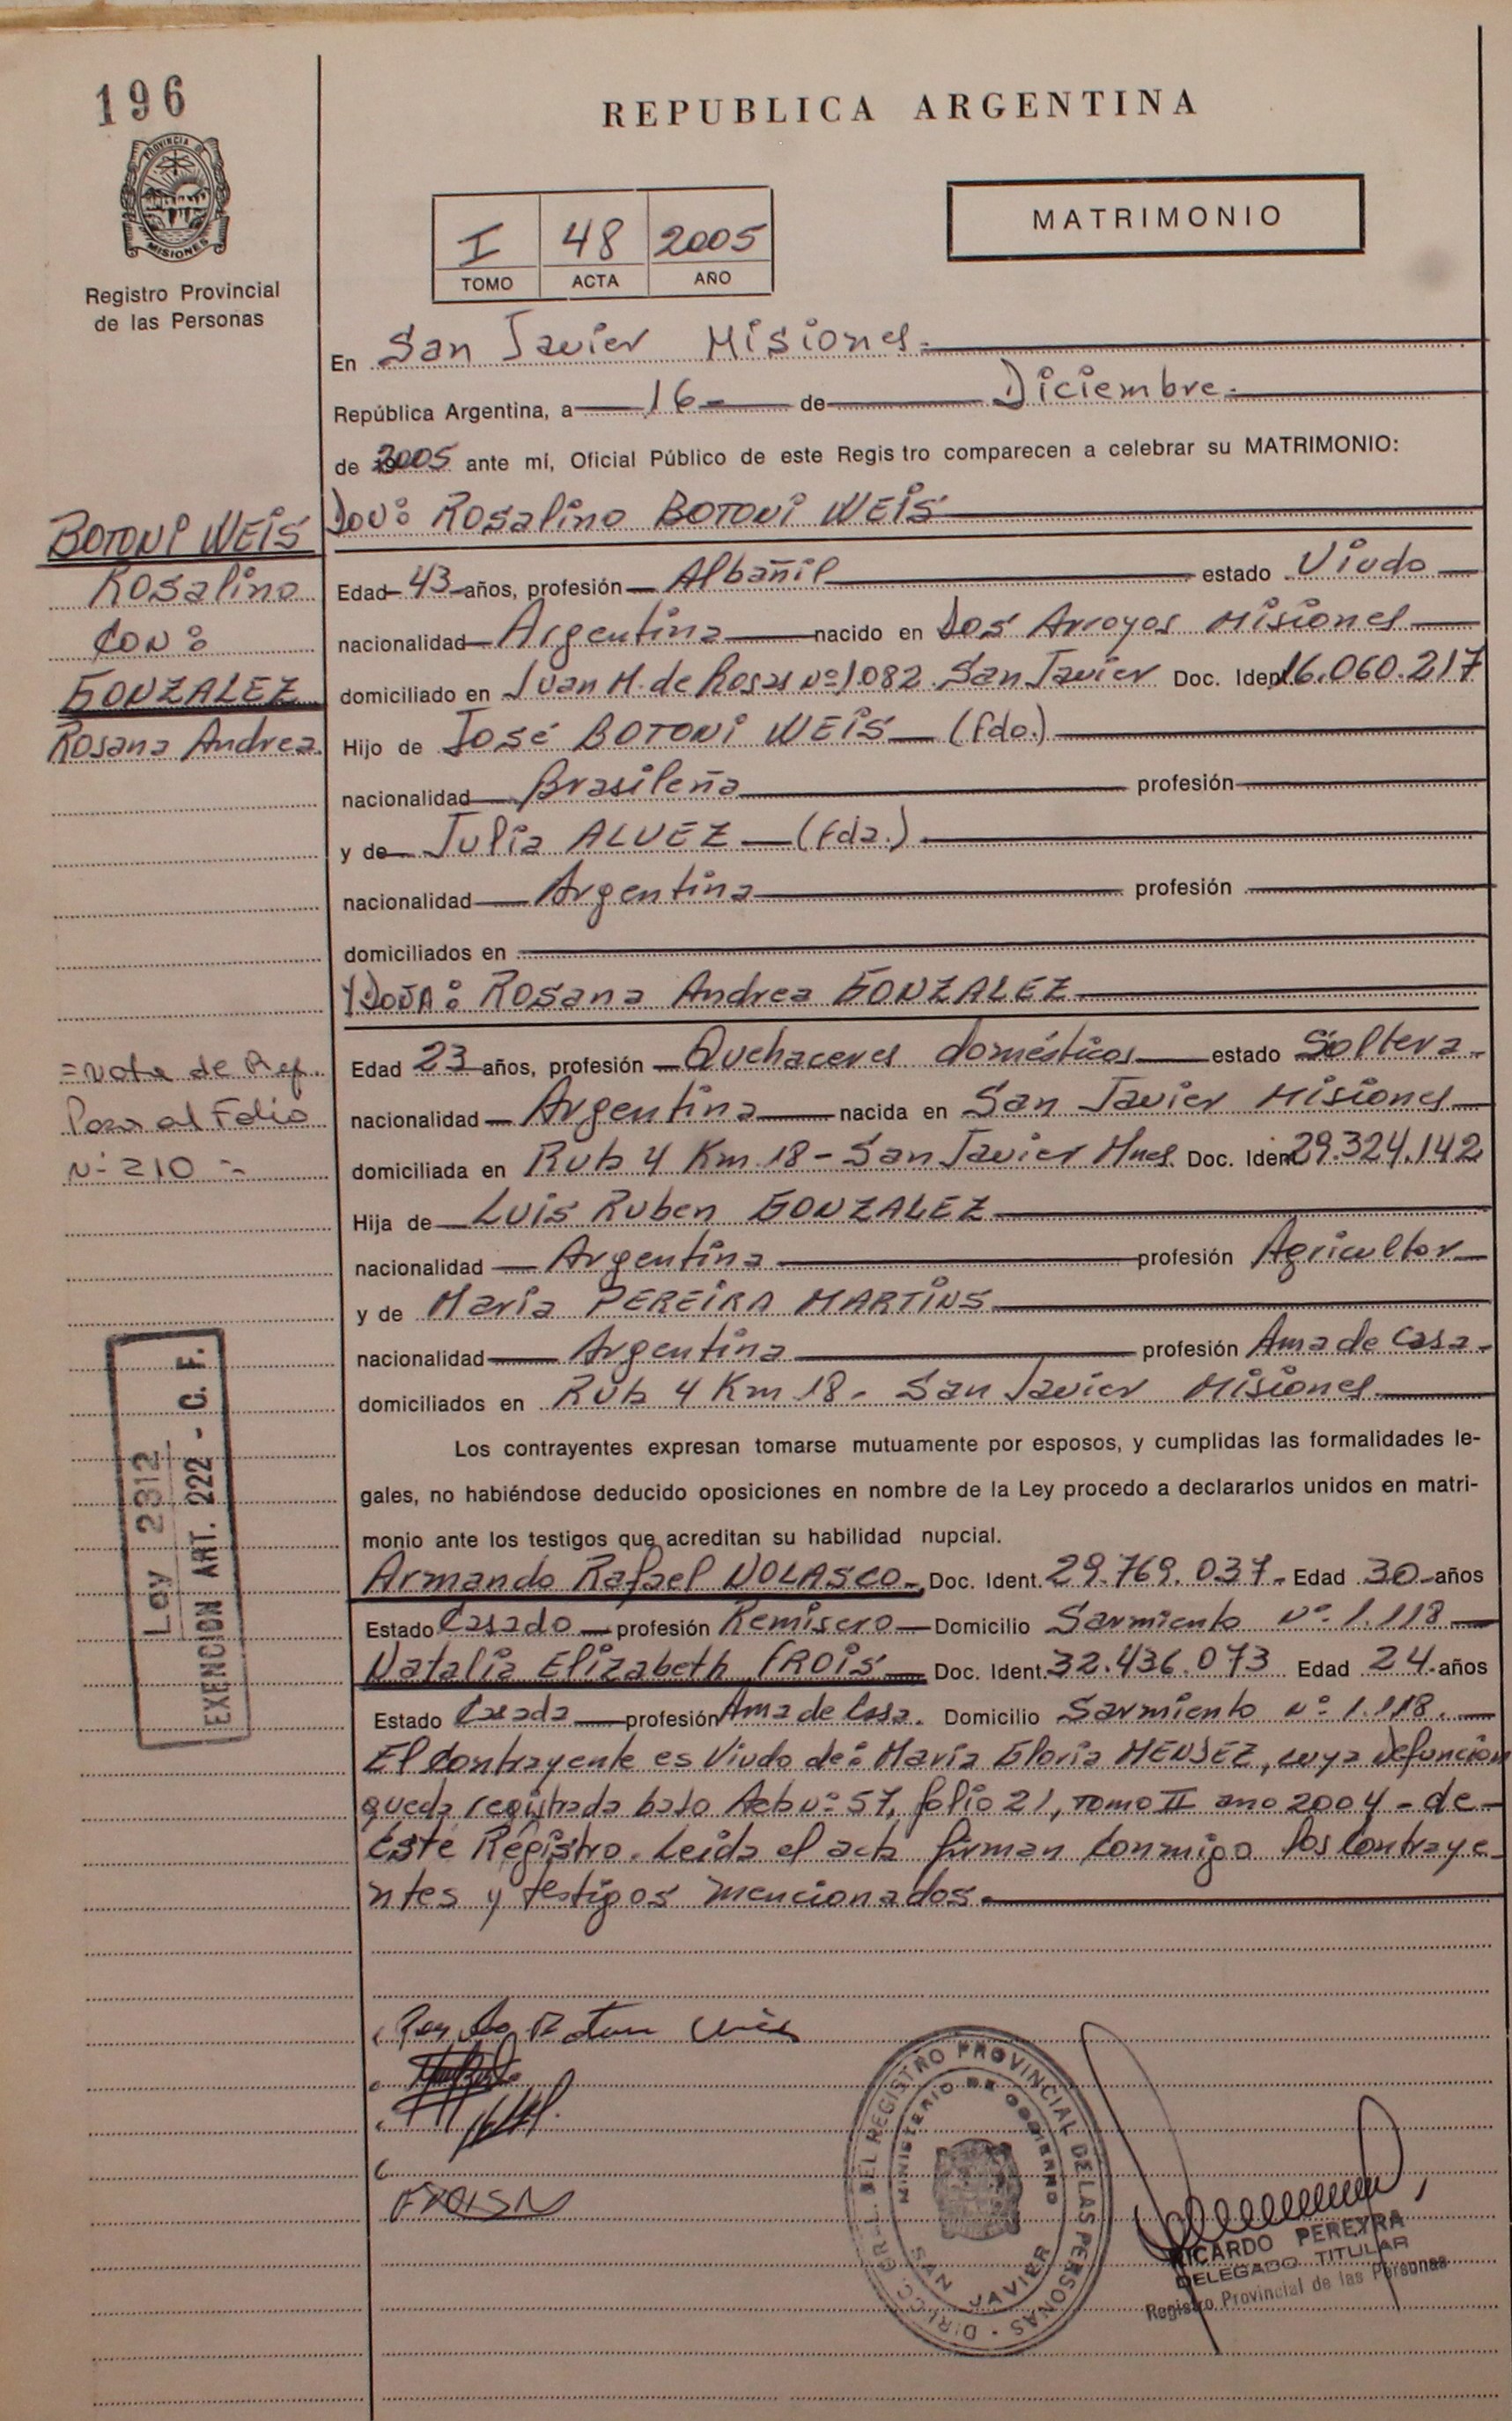 196
PROVINCIA DE
MISIONES
Registro Provincial
de las Personas
REPUBLICA ARGENTINA
I 48 2005
TOMO ACTA AÑO
MATRIMONIO
En San Javier Misiones.
República Argentina, a 16 de Diciembre.
de 2005 ante mí, Oficial Público de este Regis tro comparecen a celebrar su MATRIMONIO:
BOTONI WEIS
Rosalino
CON:
GONZALEZ
Rosana Andrea.
DON: Rosalino BOTONI WEIS
Edad 43 años, profesión Albañil estado Viudo
nacionalidad Argentina nacido en Dos Arroyos Misiones
domiciliado en Juan M. de Rosas nº 1.082. San Javier Doc. Ident. 16.060.217
Hijo de José BOTONI WEIS (fdo.)
nacionalidad Brasileña profesión
y de Julia ALVEZ (fda.)
nacionalidad Argentina profesión
domiciliados en
Y DOÑA: Rosana Andrea GONZALEZ
=Nota de Ref.
Pasa al Folio
Nº 210 =
Edad 23 años, profesión Quehaceres domésticos estado Soltera
nacionalidad Argentina nacida en San Javier Misiones
domiciliada en Ruta 4 Km 18 - San Javier Mnes. Doc. Ident. 29.324.142
Hija de Luis Ruben GONZALEZ
nacionalidad Argentina profesión Agricultor
y de María PEREIRA MARTINS
nacionalidad Argentina profesión Ama de Casa.
domiciliados en Ruta 4 Km 18 - San Javier Misiones
Ley 2312
EXENCION ART. 222 - C. F.
Los contrayentes expresan tomarse mutuamente por esposos, y cumplidas las formalidades le-
gales, no habiéndose deducido oposiciones en nombre de la Ley procedo a declararlos unidos en matri-
monio ante los testigos que acreditan su habilidad nupcial.
Armando Rafael NOLASCO Doc. Ident. 29.769.037 Edad 30 años
Estado Casado profesión Remisero Domicilio Sarmiento nº 1.118
Natalia Elizabeth FROIS Doc. Ident. 32.436.073 Edad 24 años
Estado Casada profesión Ama de Casa. Domicilio Sarmiento nº 1.118.
El Contrayente es Viudo de: María Gloria MENSEZ, cuya defunción
queda registrada bajo Acta nº 57, folio 21, tomo II año 2004 - de
Este Registro. Leída el acta firman conmigo los contraye-
ntes y testigos mencionados.
FROIS N
DIRECC. GRAL. DEL REGISTRO PROVINCIAL DE LAS PERSONAS
MINISTERIO DE GOBIERNO
SAN JAVIER
RICARDO PEREYRA
DELEGADO TITULAR
Registro Provincial de las Personas